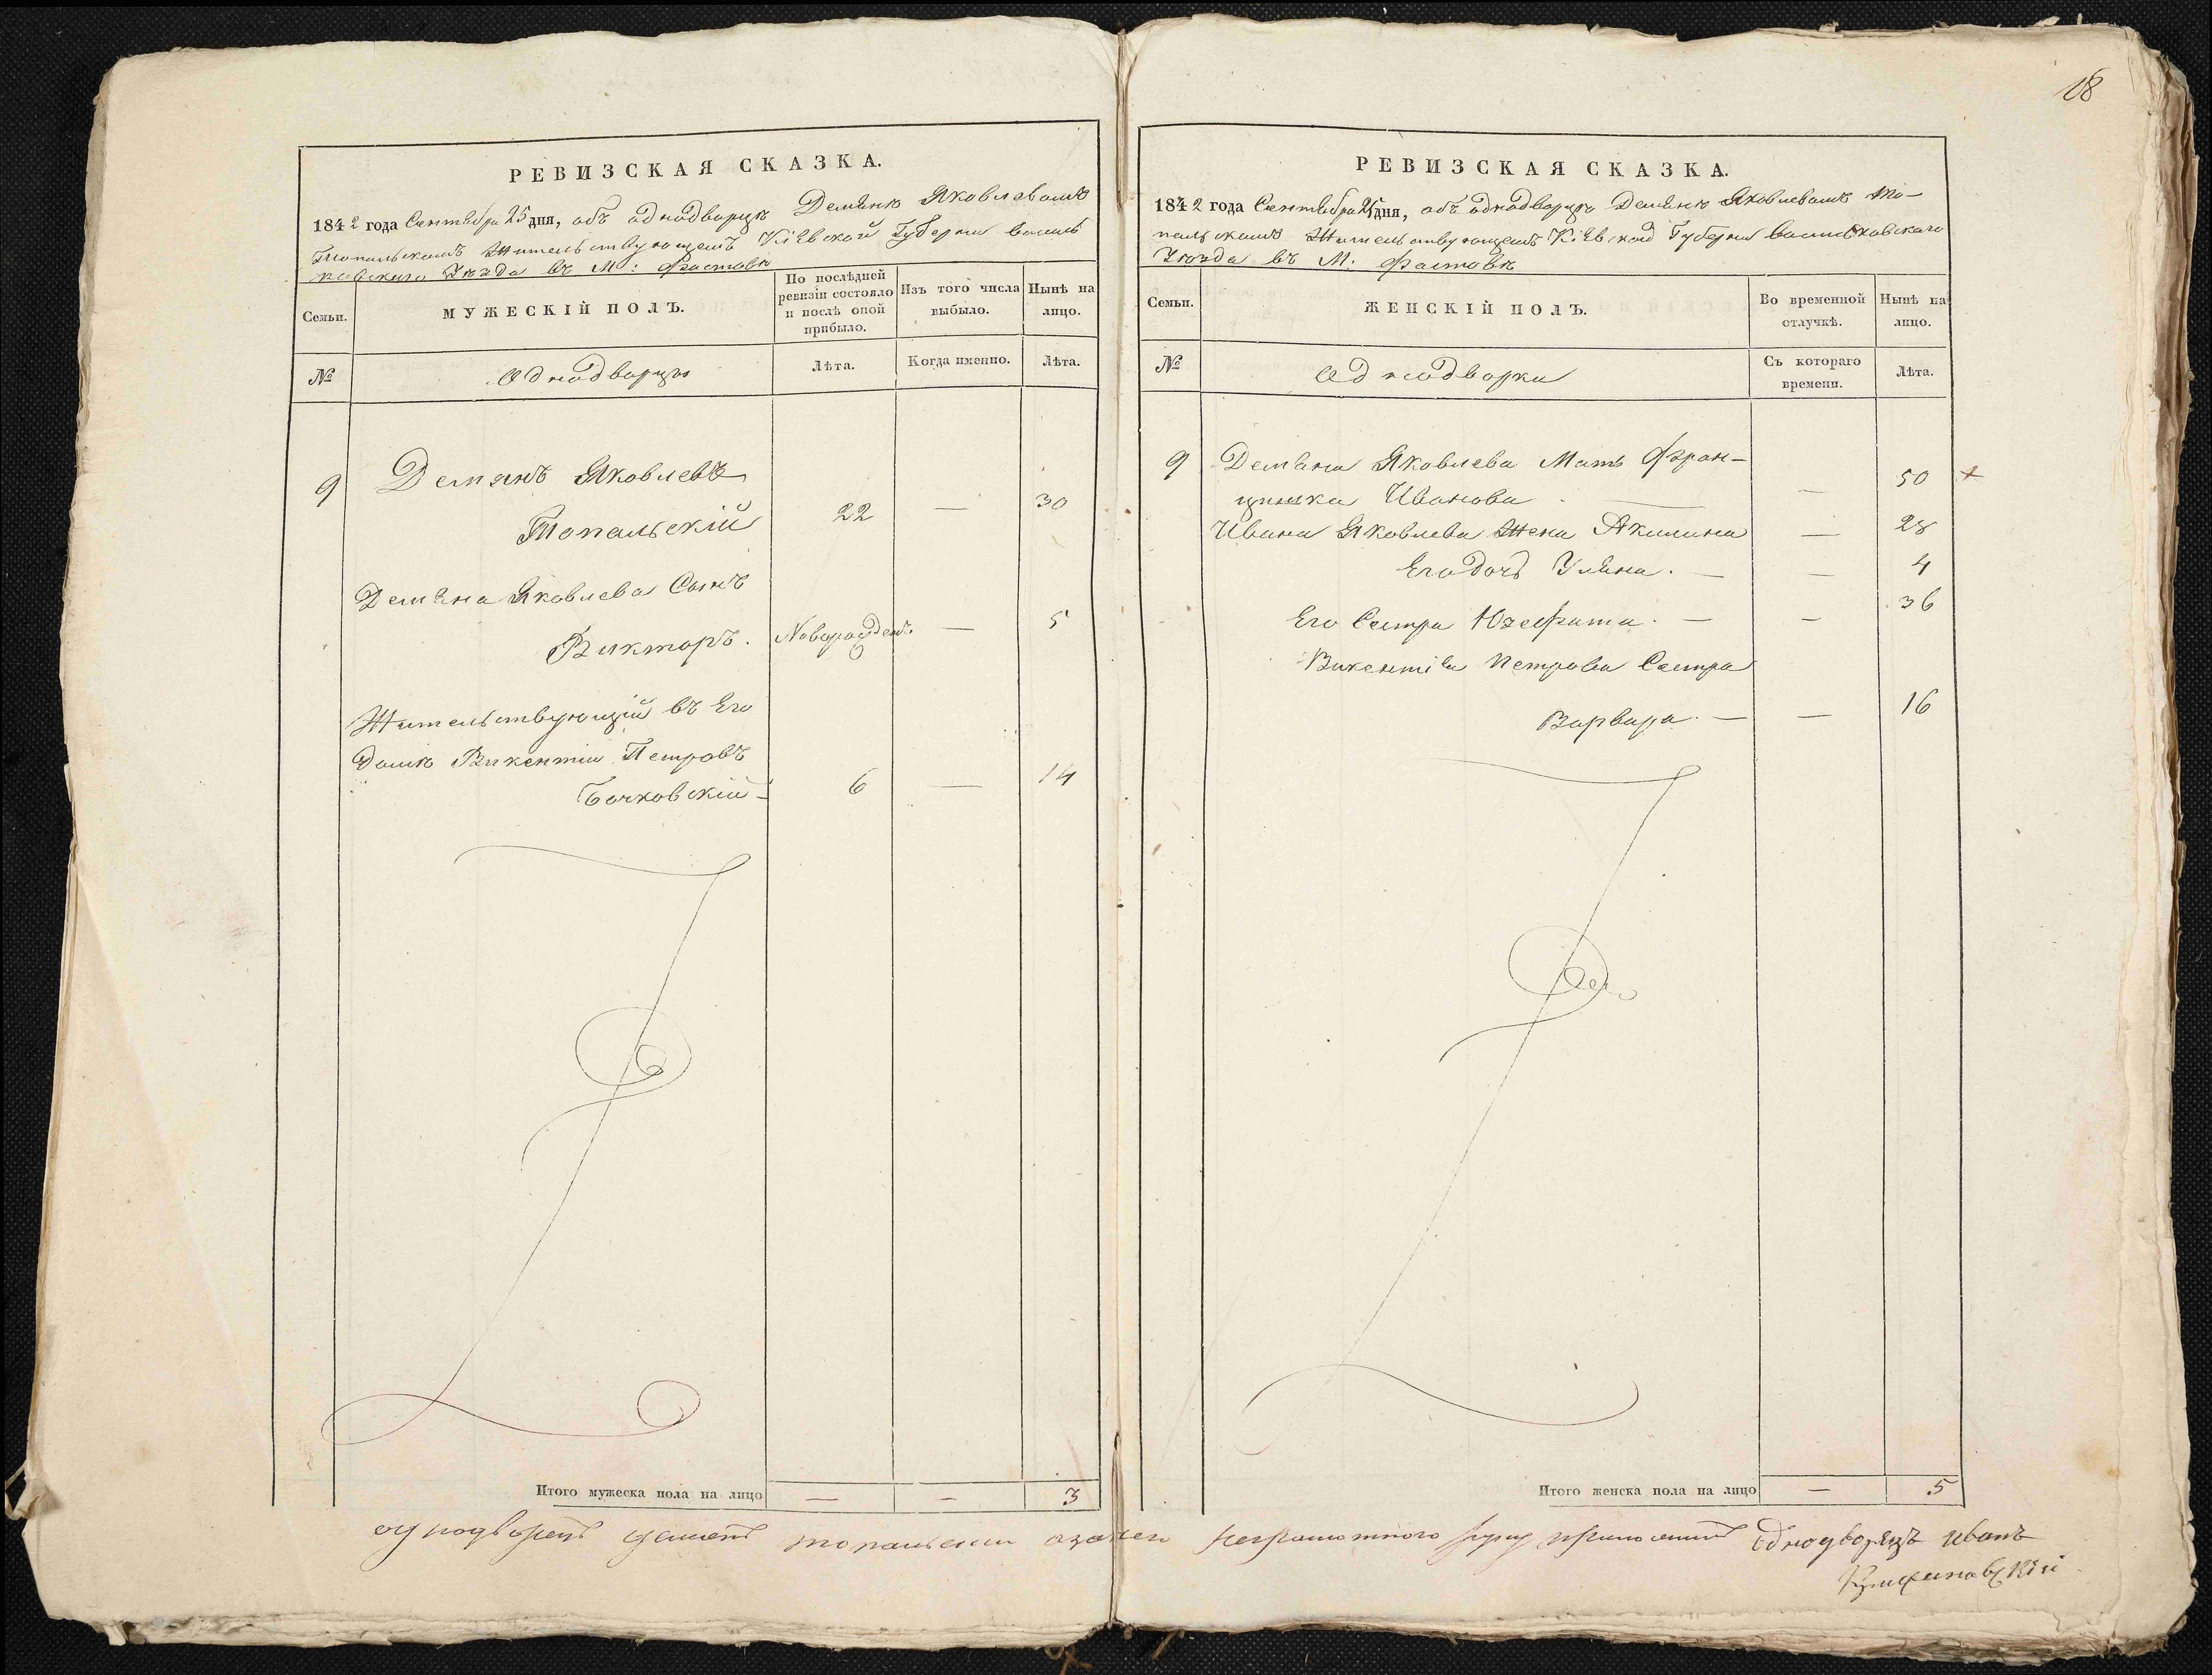 18
РЕВИЗСКАЯ СКАЗКА.
1842 года Сентября 25 дня, объ однодворцѣ Демянѣ Яковлевомъ
Топальскомъ Жительствующемъ Кіевской Губерніи Василь
ковскаго Уѣзда въ М: Фастовѣ
Семьи.
МУЖЕСКІЙ ПОЛЪ.
По послѣдней ревизіи состояло и послѣ оной прибыло.
Изъ того числа выбыло.
Нынѣ на лицо.
№
Однодворцы
Лѣта.
Когда именно.
Лѣта.
9 Демянъ Яковлевъ
Топальскій 22 — 30
Демяна Яковлева Сынъ
Викторъ. Новорожденъ — 5
Жительствующій въ Его
домѣ Викентій Петровъ
Бочковскій — 6 — 14
Итого мужеска пола на лицо — — 3
РЕВИЗСКАЯ СКАЗКА.
1842 года Сентября 25 дня, объ однодворцѣ Демянѣ Яковлевомъ То-
пальскомъ Жительствующемъ Кіевской Губерніи Васильковскаго
Уѣзда въ М. Фастовѣ
Семьи.
ЖЕНСКІЙ ПОЛЪ.
Во временной отлучкѣ.
Нынѣ на лицо.
№
Однодворки
Съ котораго времени.
Лѣта.
9 Демяна Яковлева Мать Фран-
цишка Иванова — — 50 +
Ивана Яковлева Жена Акилина — 28
Его дочь Уляна. — — 4
Его Сестра Юзефата. — — 36
Викентія Петрова Сестра
Варвара. — — 16
Итого женска пола на лицо — 5
однодворецъ Демянъ Топальский а за него неграмотного руку приложилъ Однодворецъ Иванъ